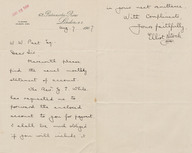 62, Paternoster Row,
London,
Aug 7 1887
W. W. Port Esq
Dear Sir
Herewith please
find the usual monthly
settlement of account.
The Rev. J. T. White
has requested me to
forward the enclosed
account to you for payment
I shall be much obliged
if you will include it
in your next remittance
With Compliments
Yours faithfully
Elliot Stock